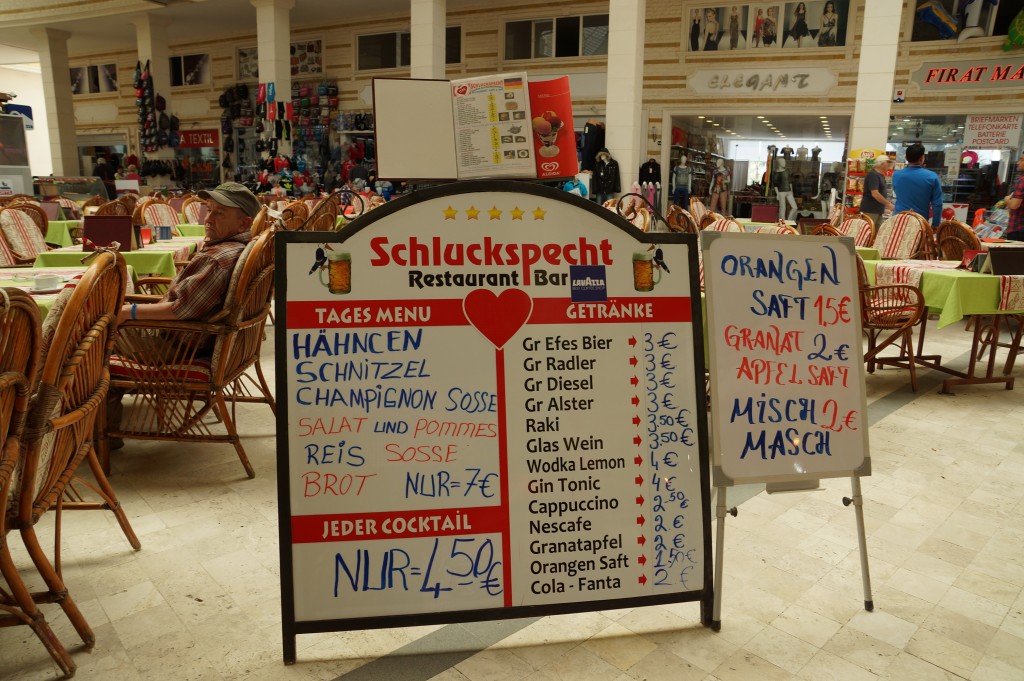 ELEGANT
FIRAT MA
A TEXTIL
BRIEFMARKEN
TELEFONKARTE
BATTERIE
POSTCARD
ALGIDA
Schluckspecht
Restaurant Bar
LAVAZZA
TAGES MENU
HÄHNCEN
SCHNITZEL
CHAMPIGNON SOSSE
SALAT UND POMMES
REIS SOSSE
BROT NUR=7€
JEDER COCKTAIL
NUR=4,50€
GETRÄNKE
Gr Efes Bier 3€
Gr Radler 3€
Gr Diesel 3€
Gr Alster 3€
Raki 3,50€
Glas Wein 3,50€
Wodka Lemon 4€
Gin Tonic 4€
Cappuccino 2-50€
Nescafe 2€
Granatapfel 2€
Orangen Saft 1,50€
Cola - Fanta 2€
ORANGEN
SAFT 1,5€
GRANAT 2€
APFEL SAFT
MİSCH 2€
MASCH